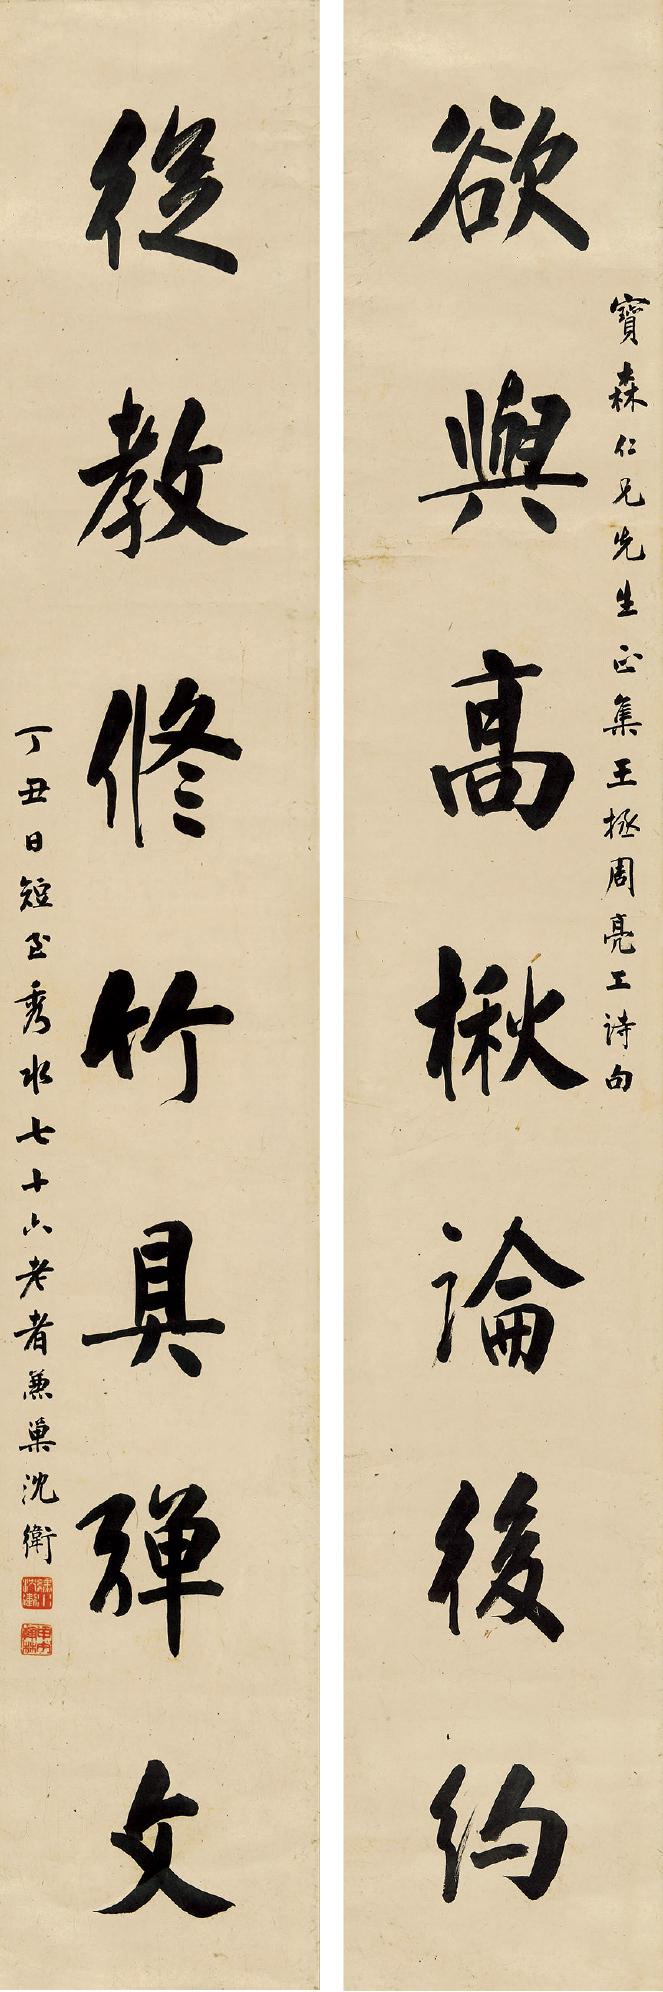 寶森仁兄先生正集王拯周亮工詩句
欲與高楸論後約
從教修竹具彈文
丁丑日短至秀水七十六老者兼巢沈衛